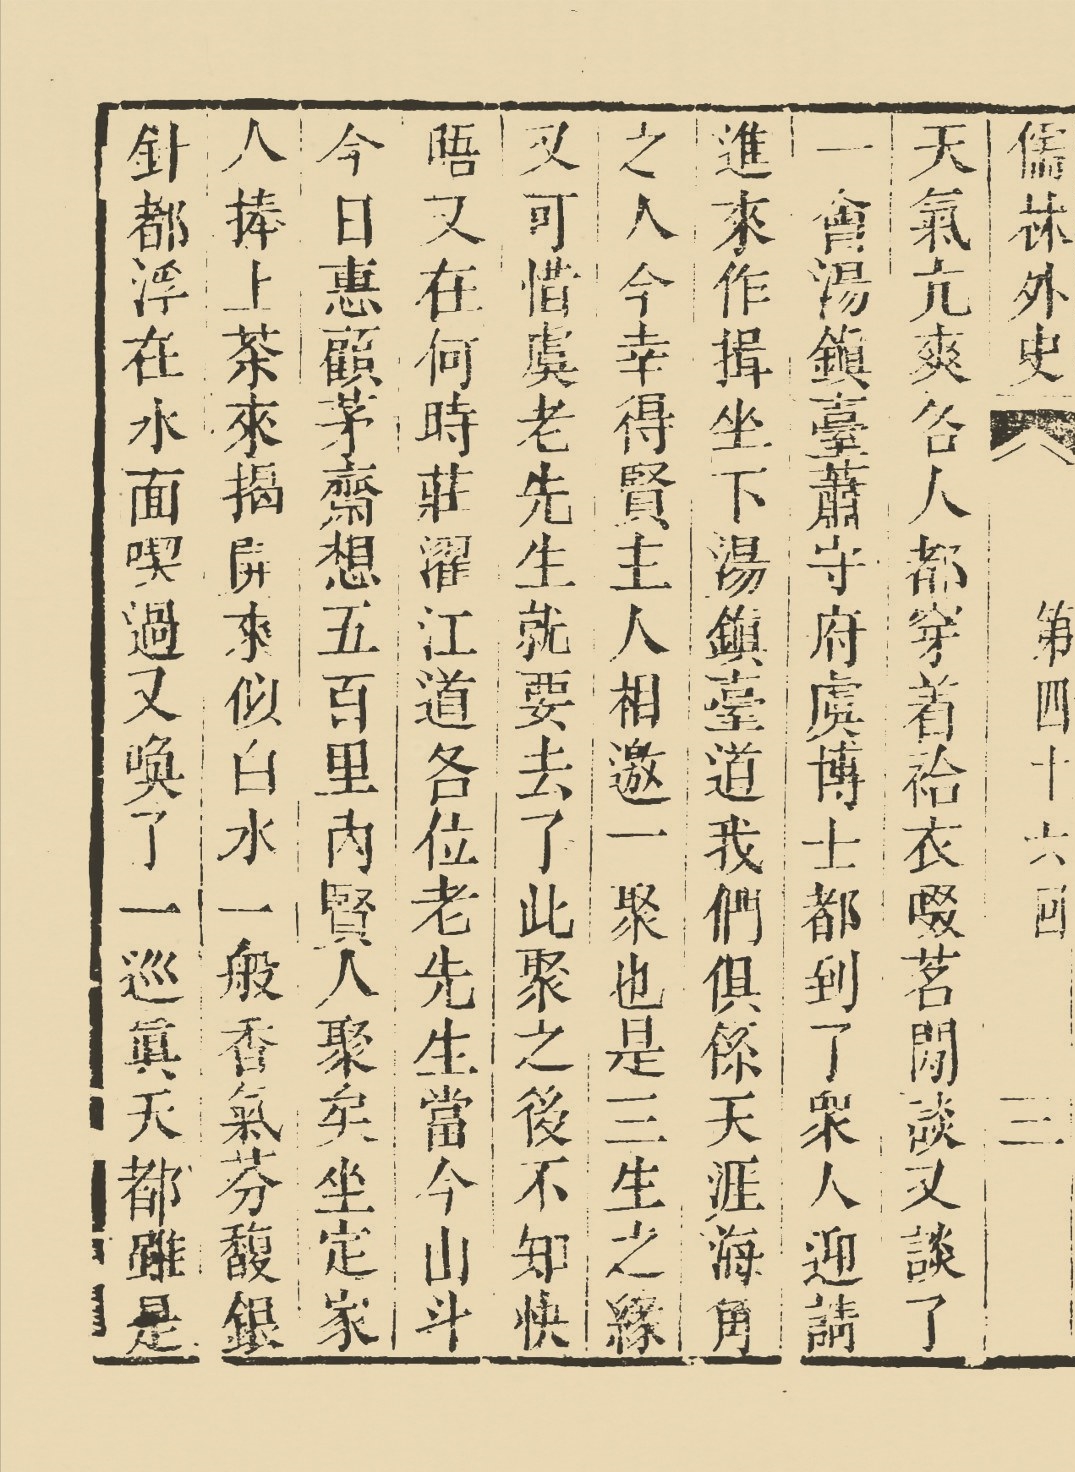 儒林外史 第四十六回 三
天氣亢爽各人都穿着袷衣啜茗閒談又談了
一會湯鎮臺蕭守府虞博士都到了衆人迎請
進來作揖坐下湯鎮臺道我們俱係天涯海角
之人今幸得賢主人相邀一聚也是三生之緣
又可惜虞老先生就要去了此聚之後不知快
晤又在何時莊濯江道各位老先生當今山斗
今日惠顧茅齋想五百里內賢人聚矣坐定家
人捧上茶來揭開來似白水一般香氣芬馥銀
針都浮在水面喫過又喚了一巡眞天都雖是